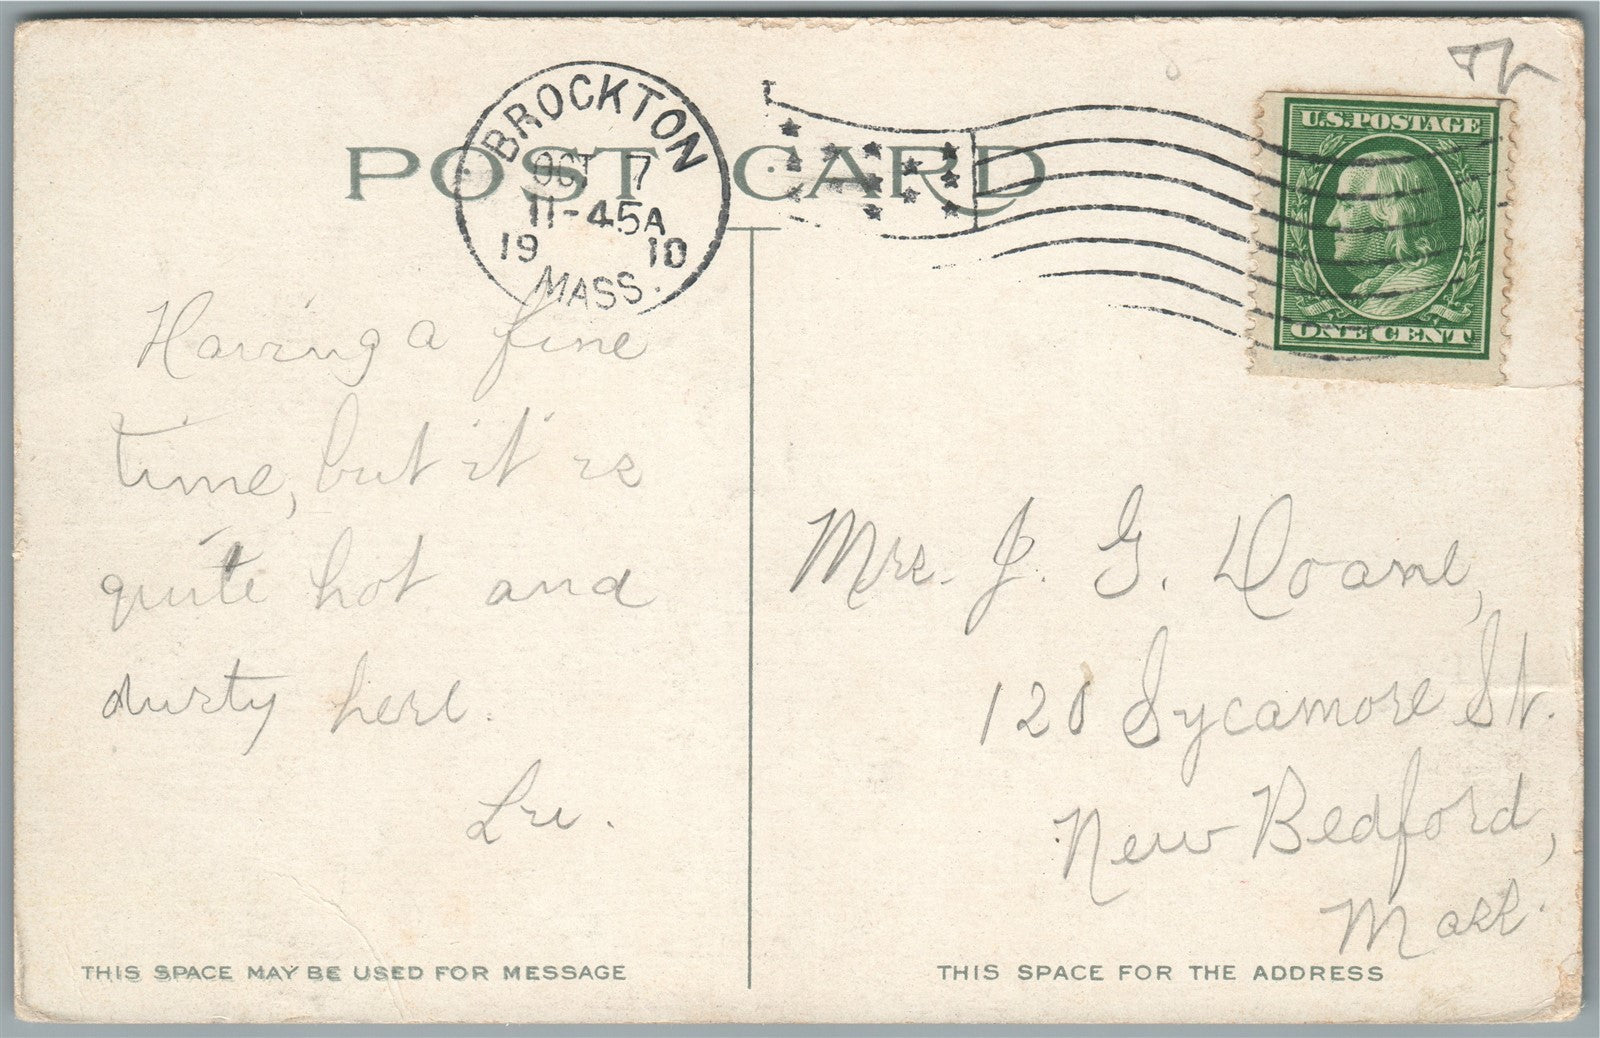 POST CARD
BROCKTON
OCT 7
11-45A
19 10
MASS.
U.S. POSTAGE
ONE CENT
Having a fine
time, but it is
quite hot and
dusty here.
Lee.
Mrs. J. G. Doane,
120 Sycamore St.
New Bedford,
Mass.
THIS SPACE MAY BE USED FOR MESSAGE
THIS SPACE FOR THE ADDRESS